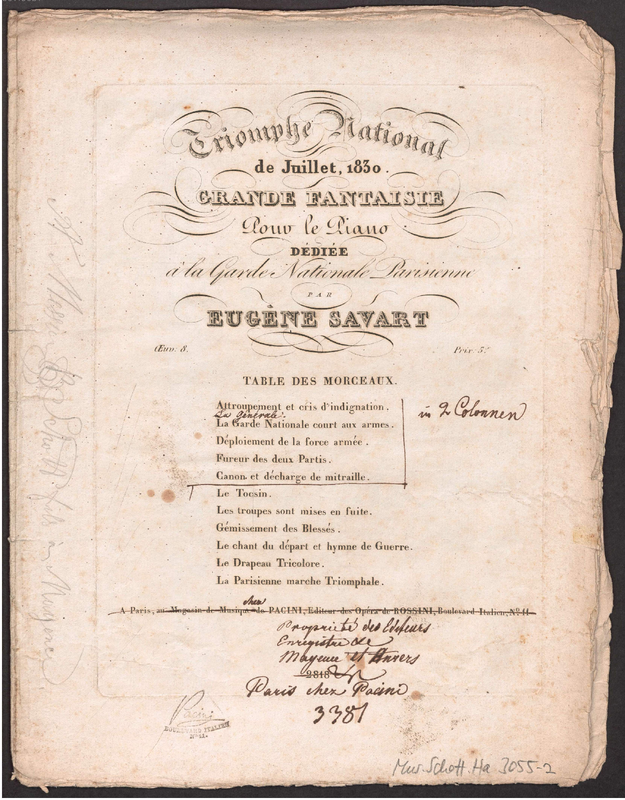 Triomphe National
de Juillet, 1830.
GRANDE FANTAISIE
Pour le Piano
DÉDIÉE
à la Garde Nationale Parisienne
PAR
EUGÈNE SAVART
Œuv: 8.
Prix: 5f
TABLE DES MORCEAUX.
Attroupement et cris d'indignation.
La générale.
La Garde Nationale court aux armes.
Déploiement de la force armée.
Fureur des deux Partis.
Canon et décharge de mitraille.
in 2 Colonnen
Le Tocsin.
Les troupes sont mises en fuite.
Gémissement des Blessés.
Le chant du départ et hymne de Guerre.
Le Drapeau Tricolore.
La Parisienne marche Triomphale.
chez
A Paris, au Magasin de Musique de PACINI, Editeur des Opéra de ROSSINI, Boulevard Italien, No. 11.
Propriété des Editeurs
Enregistré
Mayence et Anvers
2818
Paris chez Pacini
3381
Pacini
BOULEVARD ITALIEN
No. 11.
Mus. Schott. Ha 3055-2